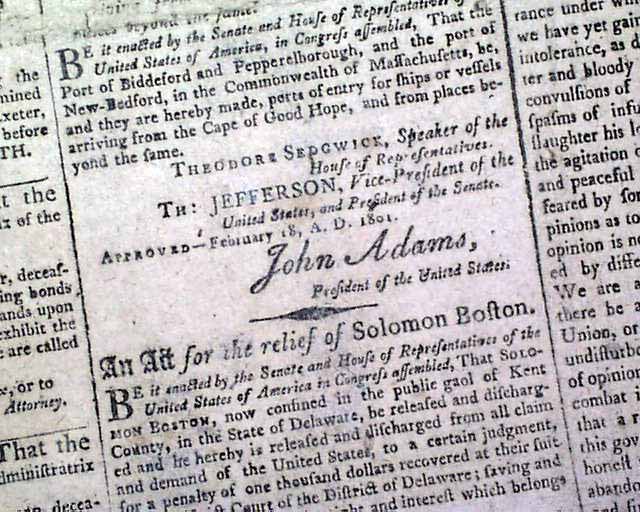 the
mined
xeter,
before
TH.
t the
ix of the
r, deceaf-
ing bonds
ands upon
exhibit the
e are called
x, or to
Attorney.
That the
dminiſtratrix
decea-
beyond the ſame.
BE it enacted by the Senate and Houſe of Repreſentatives of
United States of America, in Congreſs aſſembled, That the
Port of Biddeford and Pepperelborough, and the port of
New-Bedford, in the Commonwealth of Maſſachuſetts, be,
and they are hereby made, ports of entry for ſhips or veſſels
arriving from the Cape of Good Hope, and from places be-
yond the ſame.
THEODORE SEDGWICK, Speaker of the
Houſe of Repreſentatives.
TH: JEFFERSON, Vice-Preſident of the
United States, and Preſident of the Senate.
APPROVED—February 18, A. D. 1801.
John Adams,
Preſident of the United States.
An Act for the relief of Solomon Boſton.
BE it enacted by the Senate and Houſe of Repreſentatives of the
United States of America in Congreſs aſſembled, That SOLO-
MON BOSTON, now confined in the public gaol of Kent
County, in the State of Delaware, be releaſed and diſcharg-
ed and he hereby is releaſed and diſcharged from all claim
and demand of the United States, to a certain judgment,
for a penalty of one thouſand dollars recovered at their ſuit
Court of the Diſtrict of Delaware; ſaving and
right and intereſt which belongs
rance under w
we have yet gai
intolerance, as d
ter and bloody
convulſions of
ſpaſms of infu
ſlaughter his l
the agitation o
and peaceful
feared by ſom
pinions as to
opinion is no
ed by diffe
We are a
there be
Union, or
undiſturb
of opinion
combat
that a r
this gov
honeſt
abando
and fi